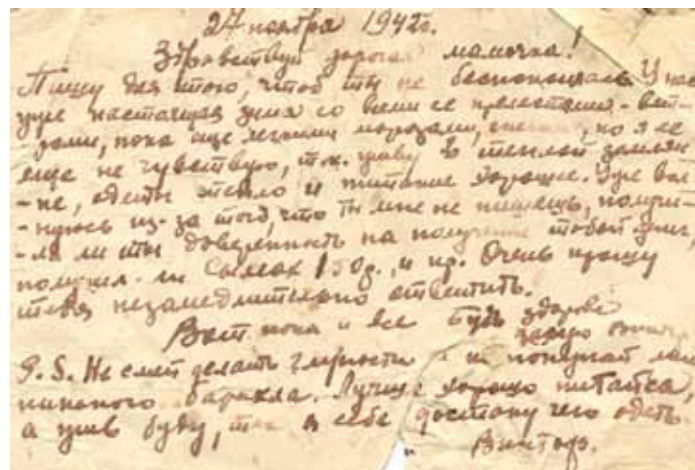 27 ноября 1942г.
Здравствуй дорогая мамочка!
Пишу для того, чтоб ты не беспокоилась. У нас
уже настоящая зима со всеми ее прелестями - вет-
рами, пока еще легкими морозами, но я ее
еще не чувствую, т.к. живу в теплой землян
-ке, одеты тепло и питание хорошее. Уже вол
-нуюсь из-за того, что ты мне не пишешь, получи-
-ла ли ты доверенность на получение тобой
получил-ли 150р., и пр. Очень прошу
тебя незамедлительно ответить.
Вот пока и все Будь здорова
P.S. Не смей делать глупости и не покупай
никакого барахла. Лучше хорошо питайся,
а жив буду, так я себе достану чего одеть.
Виктор.